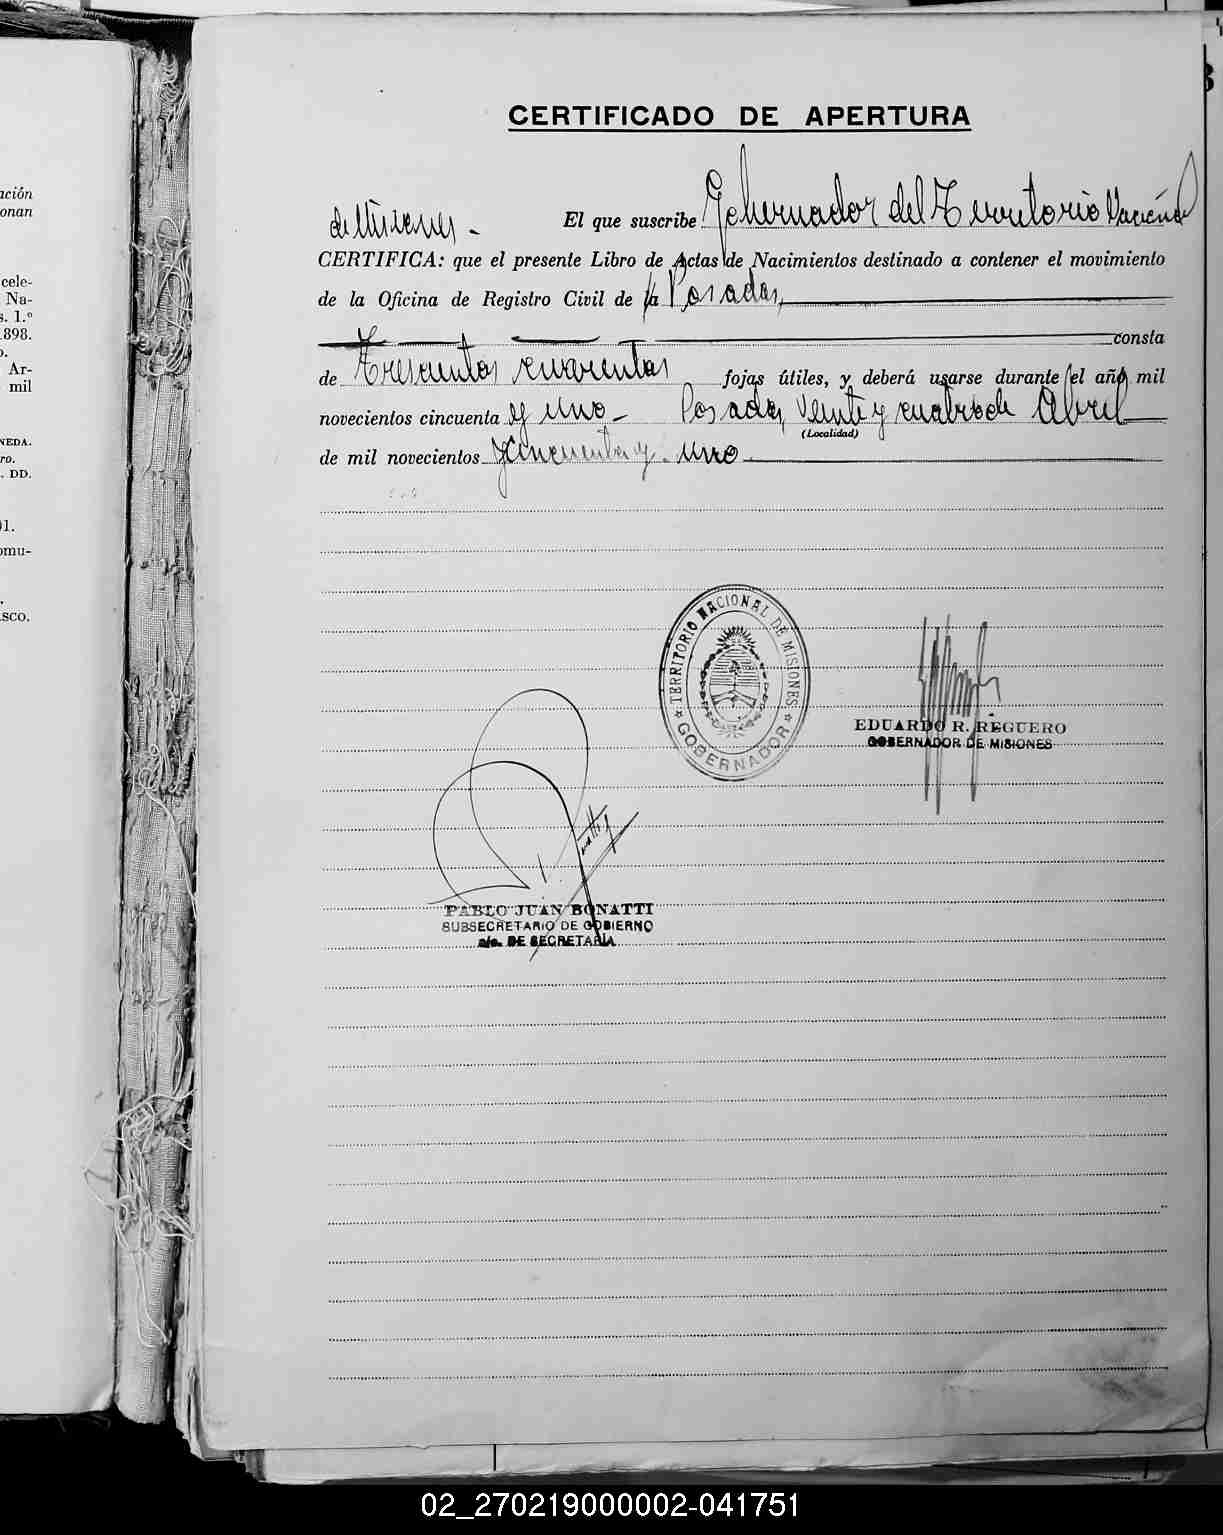 CERTIFICADO DE APERTURA
El que suscribe Gobernador del Territorio Nacional
de Misiones -
CERTIFICA: que el presente Libro de Actas de Nacimientos destinado a contener el movimiento
de la Oficina de Registro Civil de la Posadas,
consta
de Trescientas cuarentas fojas útiles, y deberá usarse durante el año mil
novecientos cincuenta y uno - Posadas, veinte y cuatro de Abril
(Localidad)
de mil novecientos cincuenta y uno
TERRITORIO NACIONAL DE MISIONES
GOBERNADOR
EDUARDO R. REGUERO
GOBERNADOR DE MISIONES
PABLO JUAN BONATTI
SUBSECRETARIO DE GOBIERNO
a/c. DE SECRETARÍA
ación
onan
cele-
Na-
s. 1.º
898.
o.
Ar-
mil
NEDA.
ro.
. DD.
1.
omu-
SCO.
02_270219000002-041751